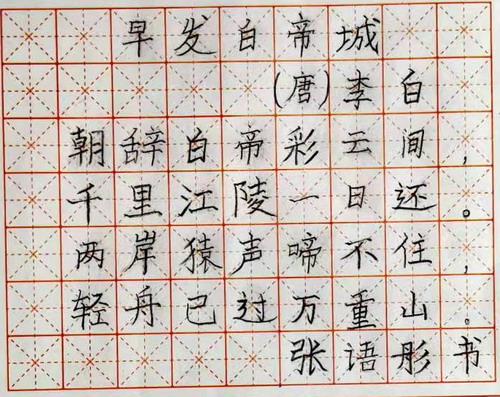 早发白帝城
(唐)李白
朝辞白帝彩云间,
千里江陵一日还。
两岸猿声啼不住,
轻舟已过万重山。
张语彤书